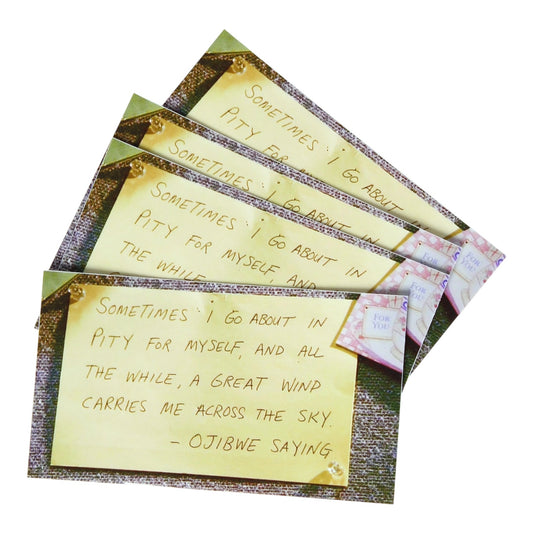 SOMETIMES I GO ABOUT
PITY FOR
SOMETIMES I GO ABOUT IN
SOMETIMES I GO ABOUT IN
PITY FOR MYSELF, AND
THE WHILE,
SOMETIMES i GO ABOUT IN
PITY FOR MYSELF, AND ALL
THE WHILE, A GREAT WIND
CARRIES ME ACROSS THE SKY.
- OJIBWE SAYING
FOR
YOU
FOR
YOU